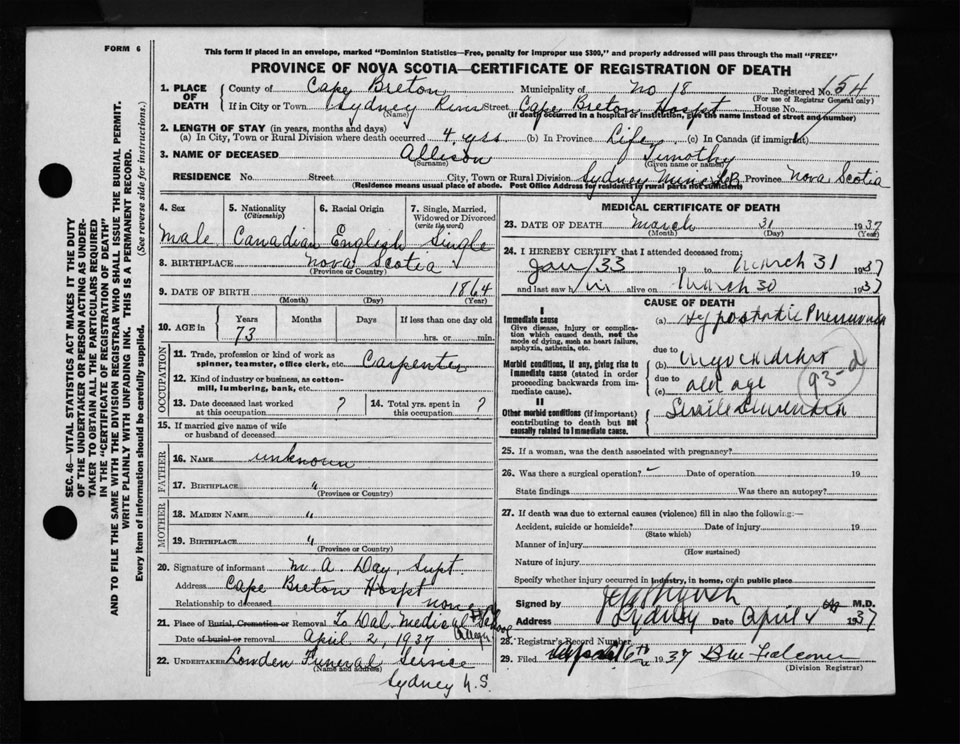 FORM 6
This form if placed in an envelope, marked "Dominion Statistics—Free, penalty for improper use $300," and properly addressed will pass through the mail "FREE"
PROVINCE OF NOVA SCOTIA—CERTIFICATE OF REGISTRATION OF DEATH
SEC. 46—VITAL STATISTICS ACT MAKES IT THE DUTY
OF THE UNDERTAKER OR PERSON ACTING AS UNDER-
TAKER TO OBTAIN ALL THE PARTICULARS REQUIRED
IN THE "CERTIFICATE OF REGISTRATION OF DEATH"
AND TO FILE THE SAME WITH THE DIVISION REGISTRAR WHO SHALL ISSUE THE BURIAL PERMIT.
WRITE PLAINLY WITH UNFADING INK. THIS IS A PERMANENT RECORD.
Every item of information should be carefully supplied. (See reverse side for instructions.)
1. PLACE OF DEATH County of Cape Breton Municipality of No 18 Registered No. 154
(For use of Registrar General only)
If in City or Town Sydney River Street Cape Breton Hospt House No.
(Name) (If death occurred in a hospital or institution, give the name instead of street and number)
2. LENGTH OF STAY (in years, months and days)
(a) In City, Town or Rural Division where death occurred 4 yrs (b) In Province Life (c) In Canada (if immigrant)
3. NAME OF DECEASED Allison Timothy
(Surname) (Given name or names)
RESIDENCE No. Street City, Town or Rural Division Sydney Mines C.B. Province Nova Scotia
(Residence means usual place of abode. Post Office Address for residents in rural parts not sufficient)
4. Sex 5. Nationality (Citizenship) 6. Racial Origin 7. Single, Married, Widowed or Divorced (write the word)
Male Canadian English Single
8. BIRTHPLACE Nova Scotia
(Province or Country)
9. DATE OF BIRTH 1864
(Month) (Day) (Year)
10. AGE in Years Months Days If less than one day old
73 hrs. or min.
OCCUPATION
11. Trade, profession or kind of work as spinner, teamster, office clerk, etc. Carpenter
12. Kind of industry or business, as cotton-mill, lumbering, bank, etc.
13. Date deceased last worked at this occupation ? 14. Total yrs. spent in this occupation ?
15. If married give name of wife or husband of deceased
FATHER
16. NAME unknown
17. BIRTHPLACE "
(Province or Country)
MOTHER
18. MAIDEN NAME "
19. BIRTHPLACE "
(Province or Country)
20. Signature of informant M. A. Day, Supt.
Address Cape Breton Hospt
Relationship to deceased none
21. Place of Burial, Cremation or Removal To Dal. Medical School
Date of burial or removal April 2, 1937
22. UNDERTAKER Lowden Funeral Service
(Name and address)
Sydney N.S.
MEDICAL CERTIFICATE OF DEATH
23. DATE OF DEATH March 31 1937
(Month) (Day) (Year)
24. I HEREBY CERTIFY that I attended deceased from:
Jan/33 19 to March 31 1937
and last saw him alive on March 30 1937
CAUSE OF DEATH
I
Immediate cause
Give disease, injury or complication which caused death, not the mode of dying, such as heart failure, asphyxia, asthenia, etc.
(a) Hypostatic Pneumonia
due to
Morbid conditions, if any, giving rise to immediate cause (stated in order proceeding backwards from immediate cause).
(b) Myocarditis
due to
(c) old age
93-a
II
Other morbid conditions (if important) contributing to death but not causally related to immediate cause.
Senile Dementia
25. If a woman, was the death associated with pregnancy?
26. Was there a surgical operation? Date of operation 19
State findings Was there an autopsy?
27. If death was due to external causes (violence) fill in also the following:—
Accident, suicide or homicide? Date of injury 19
(State which)
Manner of injury
(How sustained)
Nature of injury
Specify whether injury occurred in industry, in home, or in public place
Signed by M.D.
Address Sydney Date April 4th 1937
28. Registrar's Record Number
29. Filed 6th 1937 Falconer
(Division Registrar)